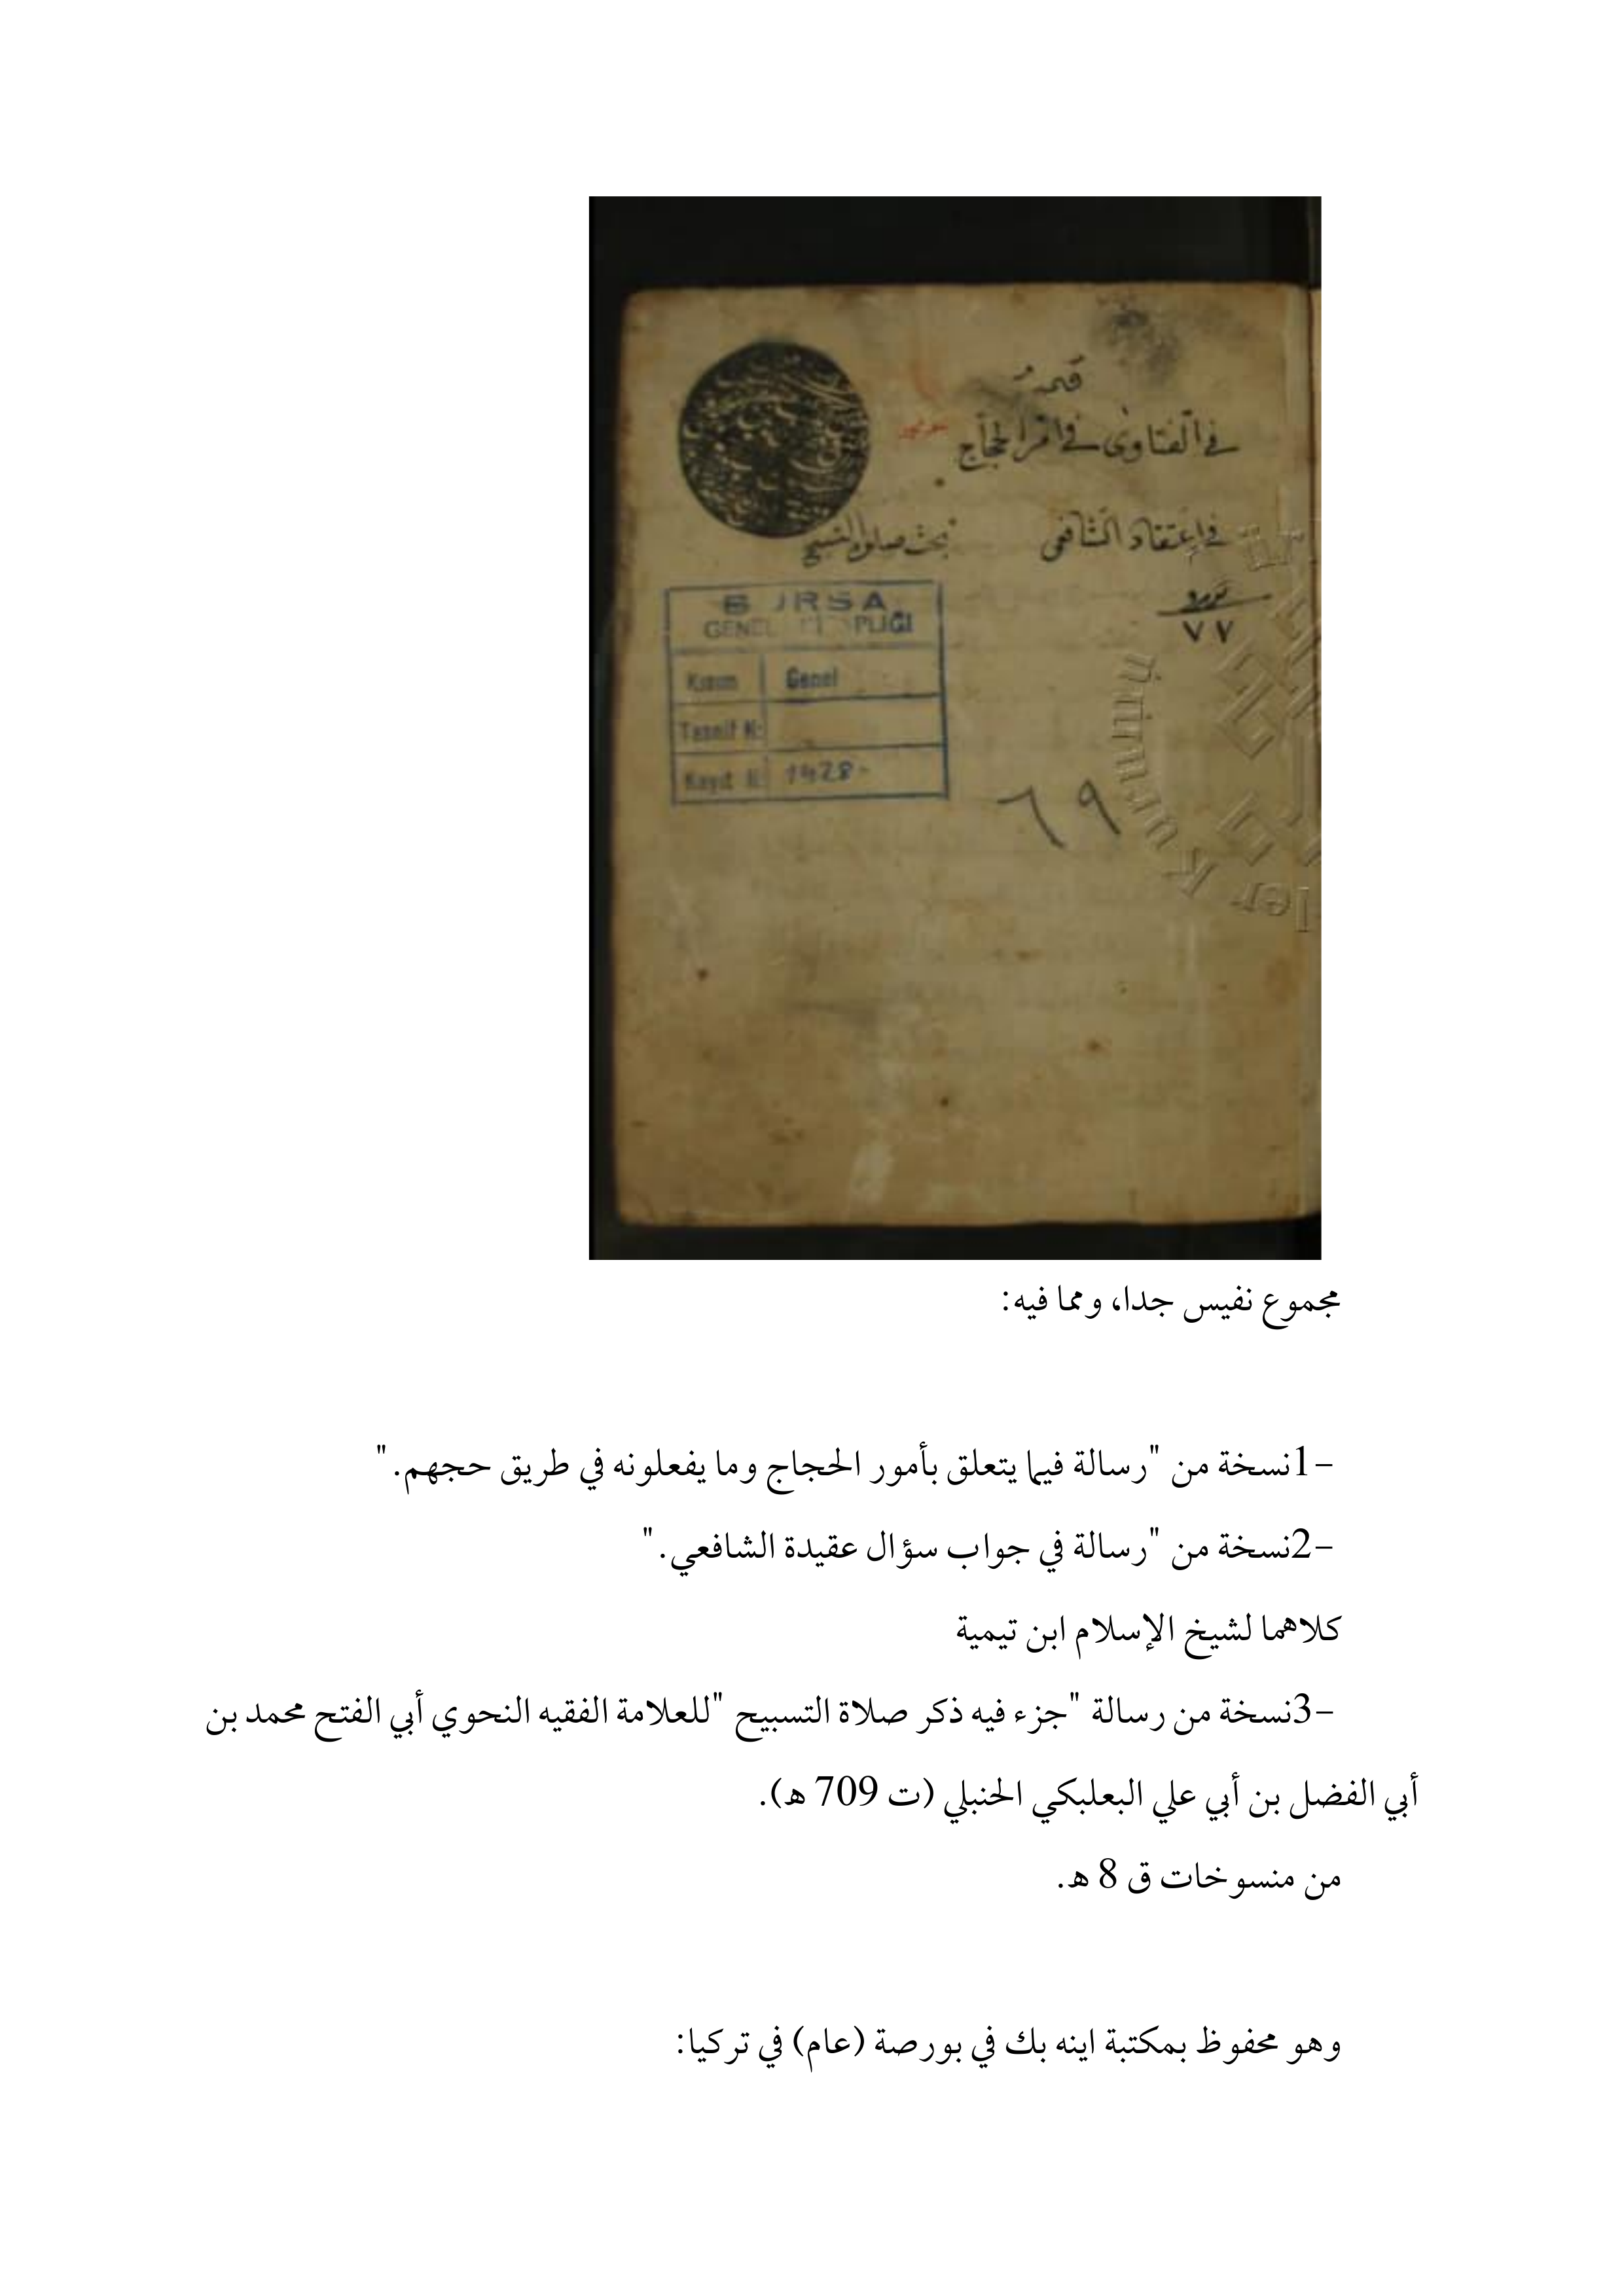 في الفتاوى في امر الحجاج
في إعتقاد الشافعي بحث صلوة التسبيح
٧٧
B URSA
GENEL PLIĞI
Kısım Genel
Tasnif N:
Kayıt N: 1428-
٦٩
مجموع نفيس جدا، ومما فيه:
-1نسخة من "رسالة فيما يتعلق بأمور الحجاج وما يفعلونه في طريق حجهم."
-2نسخة من "رسالة في جواب سؤال عقيدة الشافعي."
كلاهما لشيخ الإسلام ابن تيمية
-3نسخة من رسالة "جزء فيه ذكر صلاة التسبيح "للعلامة الفقيه النحوي أبي الفتح محمد بن
أبي الفضل بن أبي علي البعلبكي الحنبلي (ت 709 ه).
من منسوخات ق 8 ه.
وهو محفوظ بمكتبة اينه بك في بورصة (عام) في تركيا: